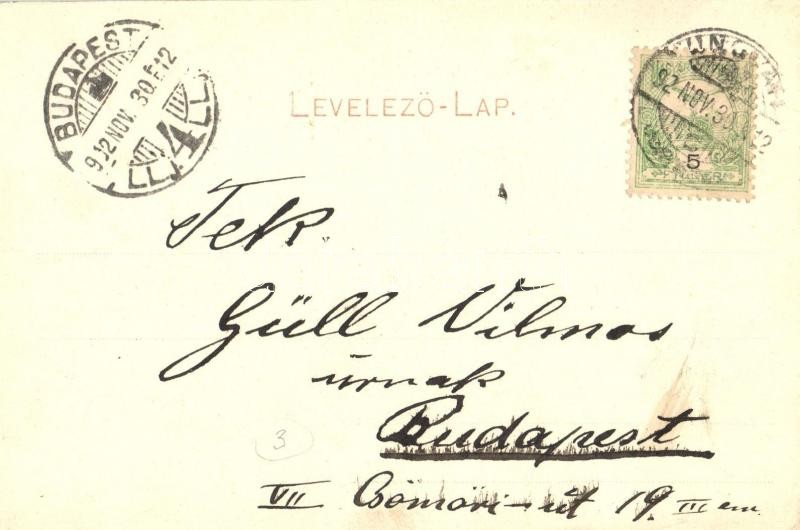 BUDAPEST
902 NOV. 30. E 12
4
LEVELEZŐ-LAP.
UNGVÁR
902 NOV. 30
5
FILLÉR
Tek.
Güll Vilmos
úrnak
Budapest
VII Csömöri-út 19. III em.
3